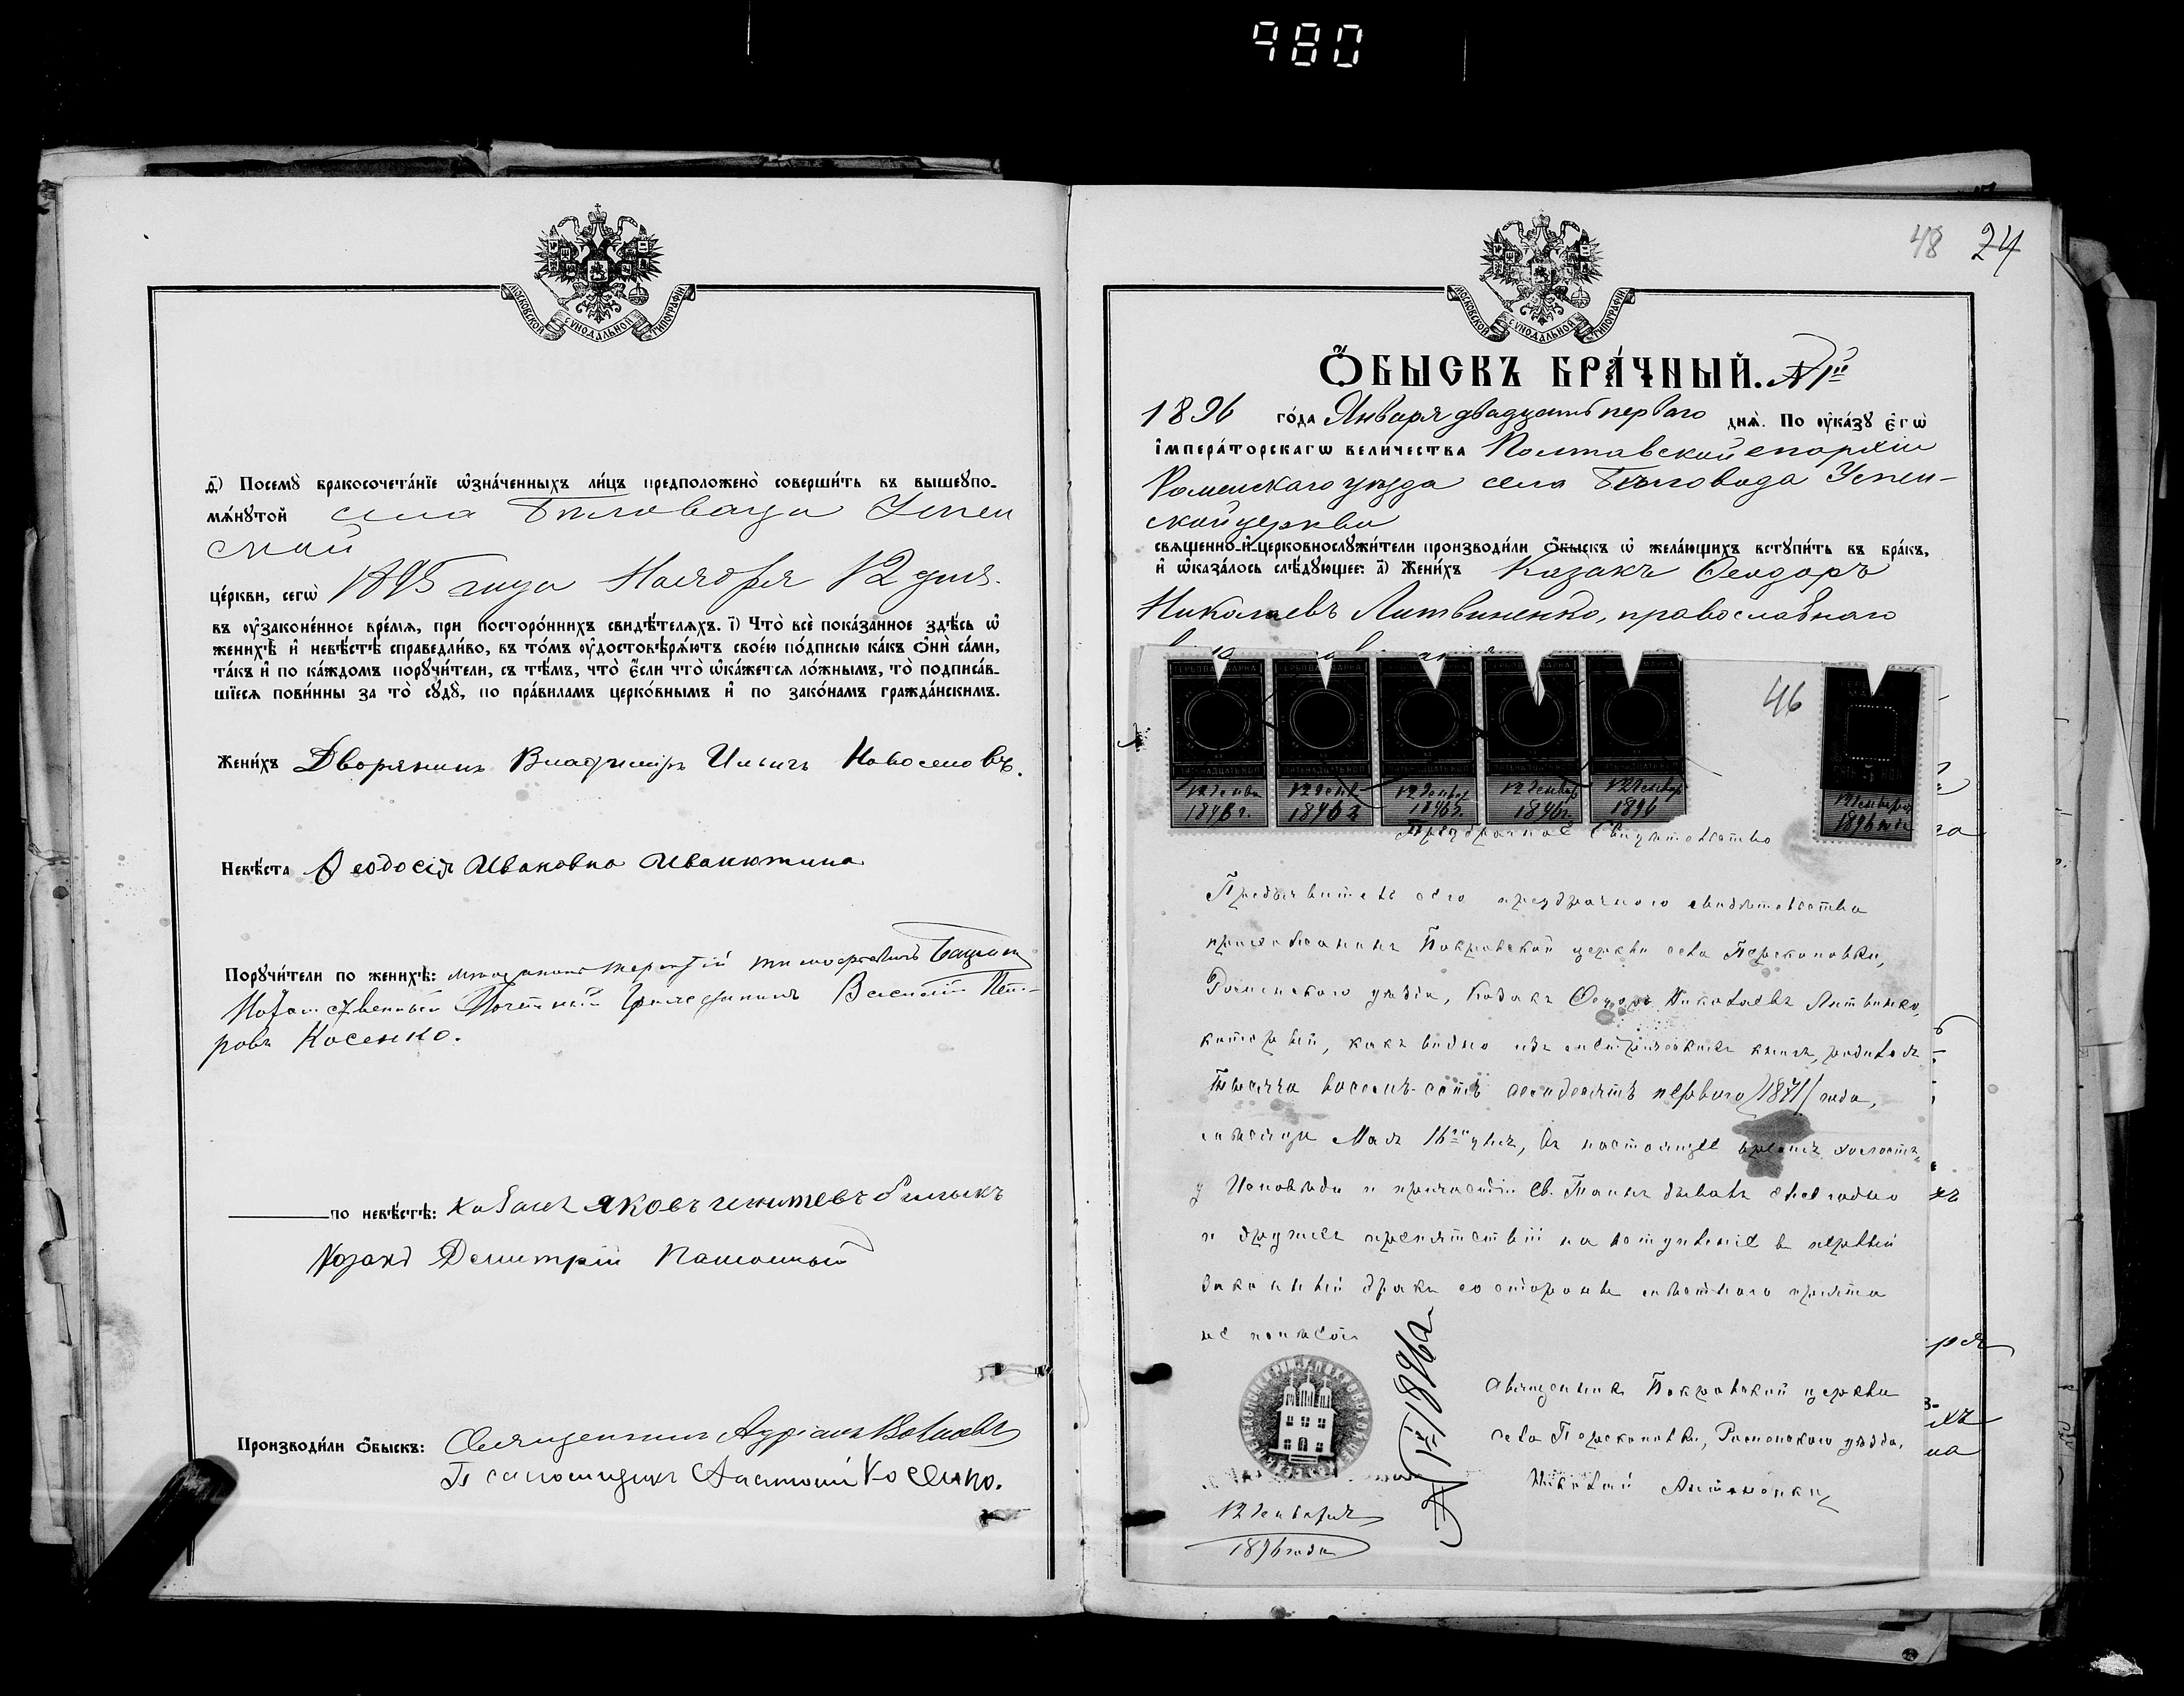 980
МОСКОВСКОЙ СУНОДАЛЬНОЙ ТИПОГРАФІИ
д҃) Посемꙋ̀ бракосочета́нїе ѡ҆зна́ченныхъ ли́цъ предположено̀ соверши́ть въ вышеꙋпо-
мѧ́нꙋтой села Бѣловода Успен
ской
це́ркви, сегѡ̀ 1895 года Ноября 12 дня.
въ ᲂу҆зако́ненное вре́мѧ, при посторо́ннихъ свидѣ́телѧхъ. і҃) Что̀ всѐ пока́занное здѣ́сь ѡ҆
женихѣ̀ и҆ невѣ́стѣ справедли́во, въ то́мъ ᲂу҆достовѣрѧ́ютъ свое́ю по́дписью ка́къ ѻ҆нѝ са́ми,
та́къ и҆ по ка́ждомъ порꙋчи́тели, съ тѣ́мъ, что̀ є҆́сли что̀ ѡ҆ка́жетсѧ ло́жнымъ, то̀ подписа́в-
шїесѧ пови́нны за то̀ сꙋдꙋ̀, по пра́виламъ церко́внымъ и҆ по зако́намъ гражда́нскимъ.
Жени́хъ Дворянинъ Владиміръ Ильичъ Новоселовъ.
Невѣ́ста Ѳеодосія Ивановна Иванютина
Порꙋчи́тели по женихѣ̀: Терентій Тимофеевичъ
Потомственный Почетный Гражданинъ Василій Пет-
ровъ Косенко.
по невѣ́стѣ: Козакъ Яковъ
Козакъ Димитрій
Производи́ли ѻ҆́быскъ: Священникъ Андріанъ
Псаломщикъ Косенко.
48 24
МОСКОВСКОЙ СУНОДАЛЬНОЙ ТИПОГРАФІИ
Ѻ҆́БЫСКЪ БРА́ЧНЫЙ. №1й
1896 го́да Января двадцать перваго днѧ̀. По ᲂу҆ка́зꙋ є҆гѡ̀
і҆мпера́торскагѡ вели́чества Полтавской епархіи
Роменскаго уѣзда села Бѣловода Успен-
ской церкви
свѧще́нно-и҆-церковнослꙋжи́тели производи́ли ѻ҆́быскъ ѡ҆ жела́ющихъ встꙋпи́ть въ бра́къ,
и҆ ѡ҆каза́лось слѣ́дꙋющее: а҃) Жени́хъ Казакъ Ѳеодоръ
Николаевъ Литвиненко, православнаго
ГЕРБОВАЯ МАРКА
46
12 Января 1896 г.
12 Янв 1896 г
12 Январ 1896 г.
12 Январ 1896 г.
12 Январ 1896
12 Января 1896 года
Предбрачное Свидѣтельство
Предъявитель сего предбрачнаго свидѣтельства
прихожанинъ Покровской церкви села Перекоповки,
Роменскаго уѣзда, Козакъ Ѳеодоръ Николаевъ Литвиненко,
который, какъ видно изъ метрическихъ книгъ, родился
тысяча восемь-сотъ семьдесятъ перваго /1871/ года,
мѣсяца Мая 16го дня, въ настоящее время холостъ,
у Исповѣди и причастія Св. Таинъ бываетъ ежегодно
и другихъ препятствій на вступленіе въ первый
законный бракъ со стороны мѣстнаго причта
не имѣетъ
№ 1й 1896 г.
Священникъ Покровской церкви
села Перекоповки, Роменскаго уѣзда,
12 Января
1896 года